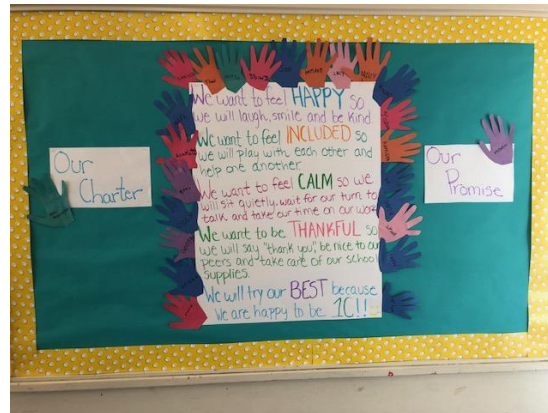 Our
Charter
We want to feel HAPPY so
we will laugh, smile and be kind.
We want to feel INCLUDED so
we will play with each other and
help one another.
We want to feel CALM so we
will sit quietly, wait for our turn to
talk and take our time on our work.
We want to be THANKFUL so
we will say "thank you", be nice to our
peers and take care of our school
supplies.
We will try our BEST because
we are happy to be 1C!!
Our
Promise